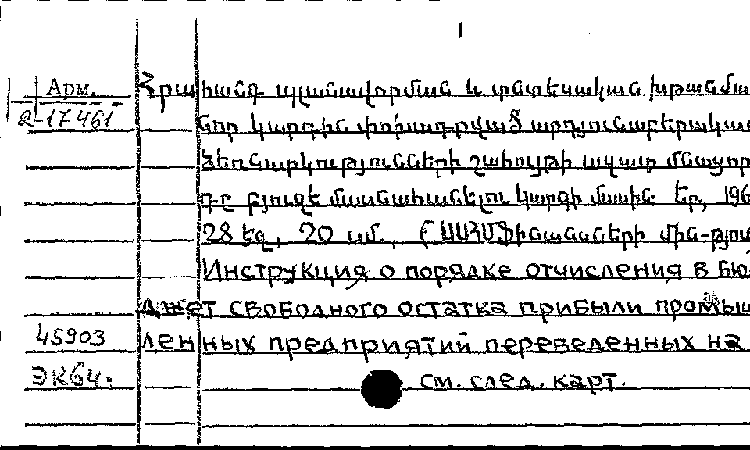 Арм.
2-17461
Հրահանգ պլանավորման և տնտեսական խթանման
նոր կարգին փոխադրված արդյունաբերական
ձեռնարկությունների շահույթի ազատ մնացոր
դը բյուջե մասնահանելու կարգի մասին. Եր, 196
28 եջ, 20 սմ., (ՍՍՀՄ Ֆինանսների մին-թյու
Инструкция о порядке отчисления в бю
джет свободного остатка прибыли промыш
45903
ленных предприятий переведенных на
ЭК64.
см. след. карт.